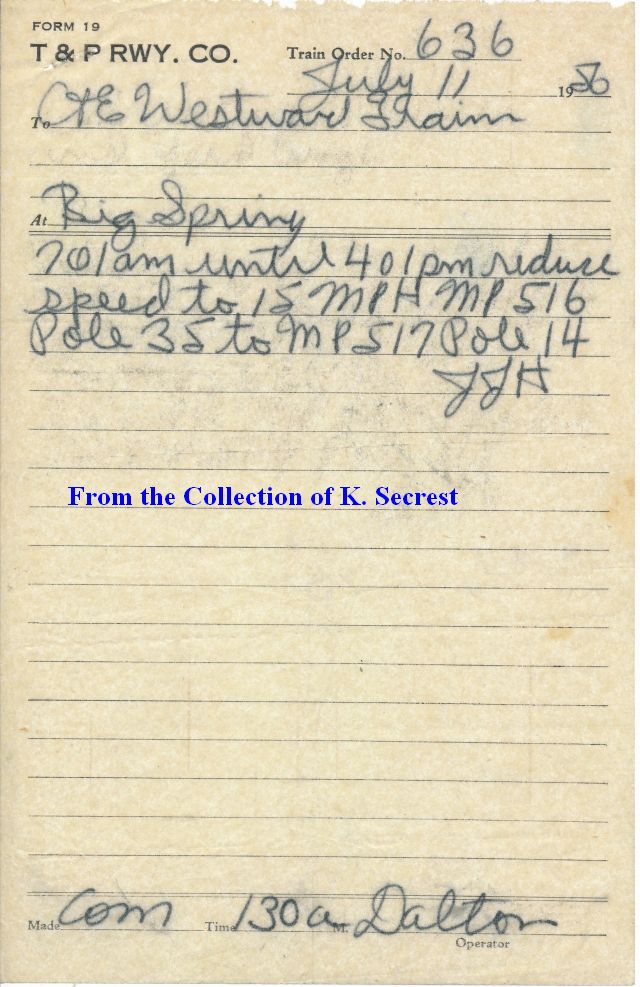 FORM 19
T & P RWY. CO.
Train Order No. 636
July 11 1956
To C&E Westward Train
At Big Spring
701am until 401pm reduce
speed to 15 MPH MP 516
Pole 35 to MP 517 Pole 14
JJH
From the Collection of K. Secrest
Made Com Time 130a M. Dalton
Operator